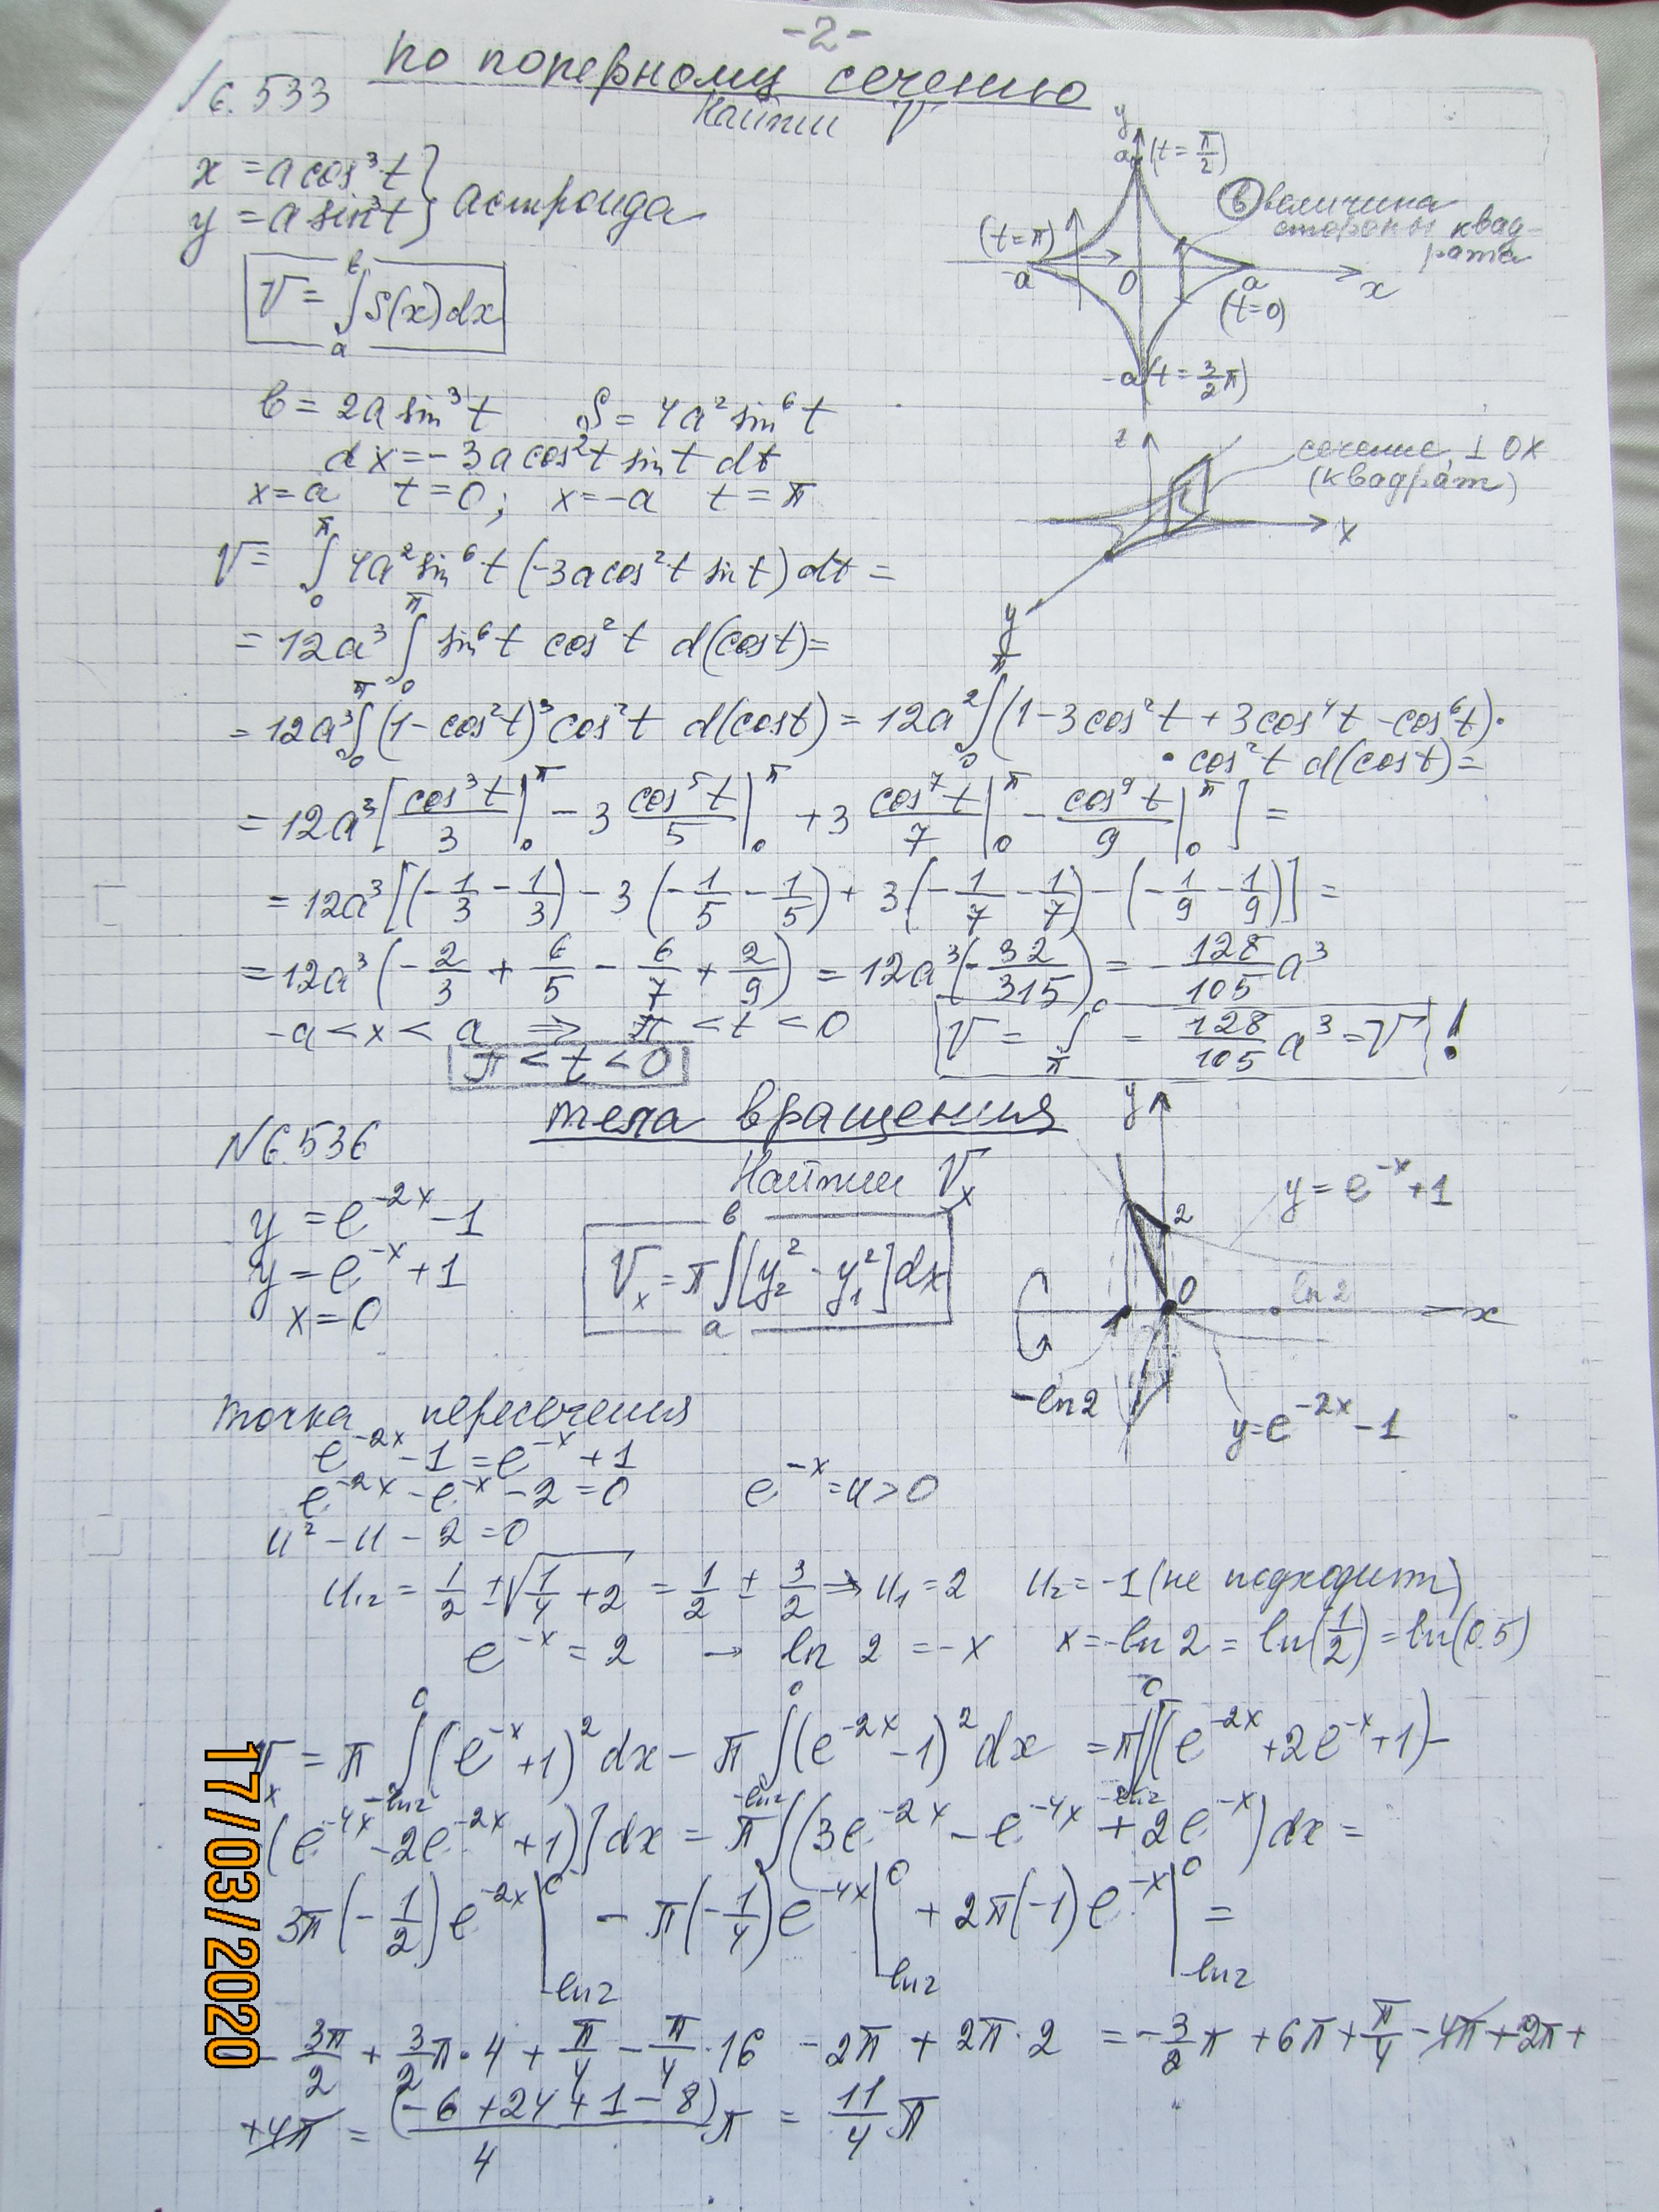 -2-
по поперному сечению
№6.533
Найти V
x = a cos³t
y = a sin³t } астроида
V = ∫ₐᵇ S(x)dx
y
a (t = π/2)
(t=π)
-a
0
a
(t=0)
x
-a (t = 3/2 π)
(в) величина
стороны квад-
рата
в = 2a sin³t   S = 4a² sin⁶t
dx = -3a cos²t sin t dt
x = a   t = 0;   x = -a   t = π
z
x
y
сечение, ⊥ OX
(квадрат)
V = ∫₀^π 4a² sin⁶t (-3a cos²t sin t) dt =
= 12a³ ∫₀^π sin⁶t cos²t d(cos t) =
= 12a³ ∫₀^π (1 - cos²t)³ cos²t d(cos t) = 12a² ∫₀^π (1 - 3cos²t + 3cos⁴t - cos⁶t)·
· cos²t d(cos t) =
= 12a³ [cos³t/3 |₀^π - 3 cos⁵t/5 |₀^π + 3 cos⁷t/7 |₀^π - cos⁹t/9 |₀^π] =
= 12a³ [(-1/3 - 1/3) - 3(-1/5 - 1/5) + 3(-1/7 - 1/7) - (-1/9 - 1/9)] =
= 12a³ (-2/3 + 6/5 - 6/7 + 2/9) = 12a³(-32/315) = -128/105 a³
-a < x < a ⇒ π < t < 0
π < t < 0
V = ∫_π^0 = 128/105 a³ = V !
тела вращения
№6.536
Найти Vₓ
y = e^(-2x) - 1
y = e^(-x) + 1
x = 0
Vₓ = π ∫ₐᵇ [y₂² - y₁²] dx
y
2
0
ln2
x
-ln2
y = e^(-x) + 1
y = e^(-2x) - 1
точка пересечения
e^(-2x) - 1 = e^(-x) + 1
e^(-2x) - e^(-x) - 2 = 0   e^(-x) = u > 0
u² - u - 2 = 0
u₁,₂ = 1/2 ± √(1/4 + 2) = 1/2 ± 3/2 ⇒ u₁ = 2   u₂ = -1 (не подходит)
e^(-x) = 2 → ln 2 = -x   x = -ln 2 = ln(1/2) = ln(0.5)
Vₓ = π ∫_(-ln2)^0 (e^(-x) + 1)² dx - π ∫_(-ln2)^0 (e^(-2x) - 1)² dx = π ∫_(-ln2)^0 [(e^(-2x) + 2e^(-x) + 1) -
(e^(-4x) - 2e^(-2x) + 1)] dx = π ∫ (3e^(-2x) - e^(-4x) + 2e^(-x)) dx =
3π(-1/2) e^(-2x) |_(-ln2)^0 - π(-1/4) e^(-4x) |_(-ln2)^0 + 2π(-1) e^(-x) |_(-ln2)^0 =
- 3π/2 + 3/2 π·4 + π/4 - π/4·16 - 2π + 2π·2 = -3/2 π + 6π + π/4 - 4π + 2π +
+4π = (-6 + 24 + 1 - 8)/4 π = 11/4 π
17/03/2020